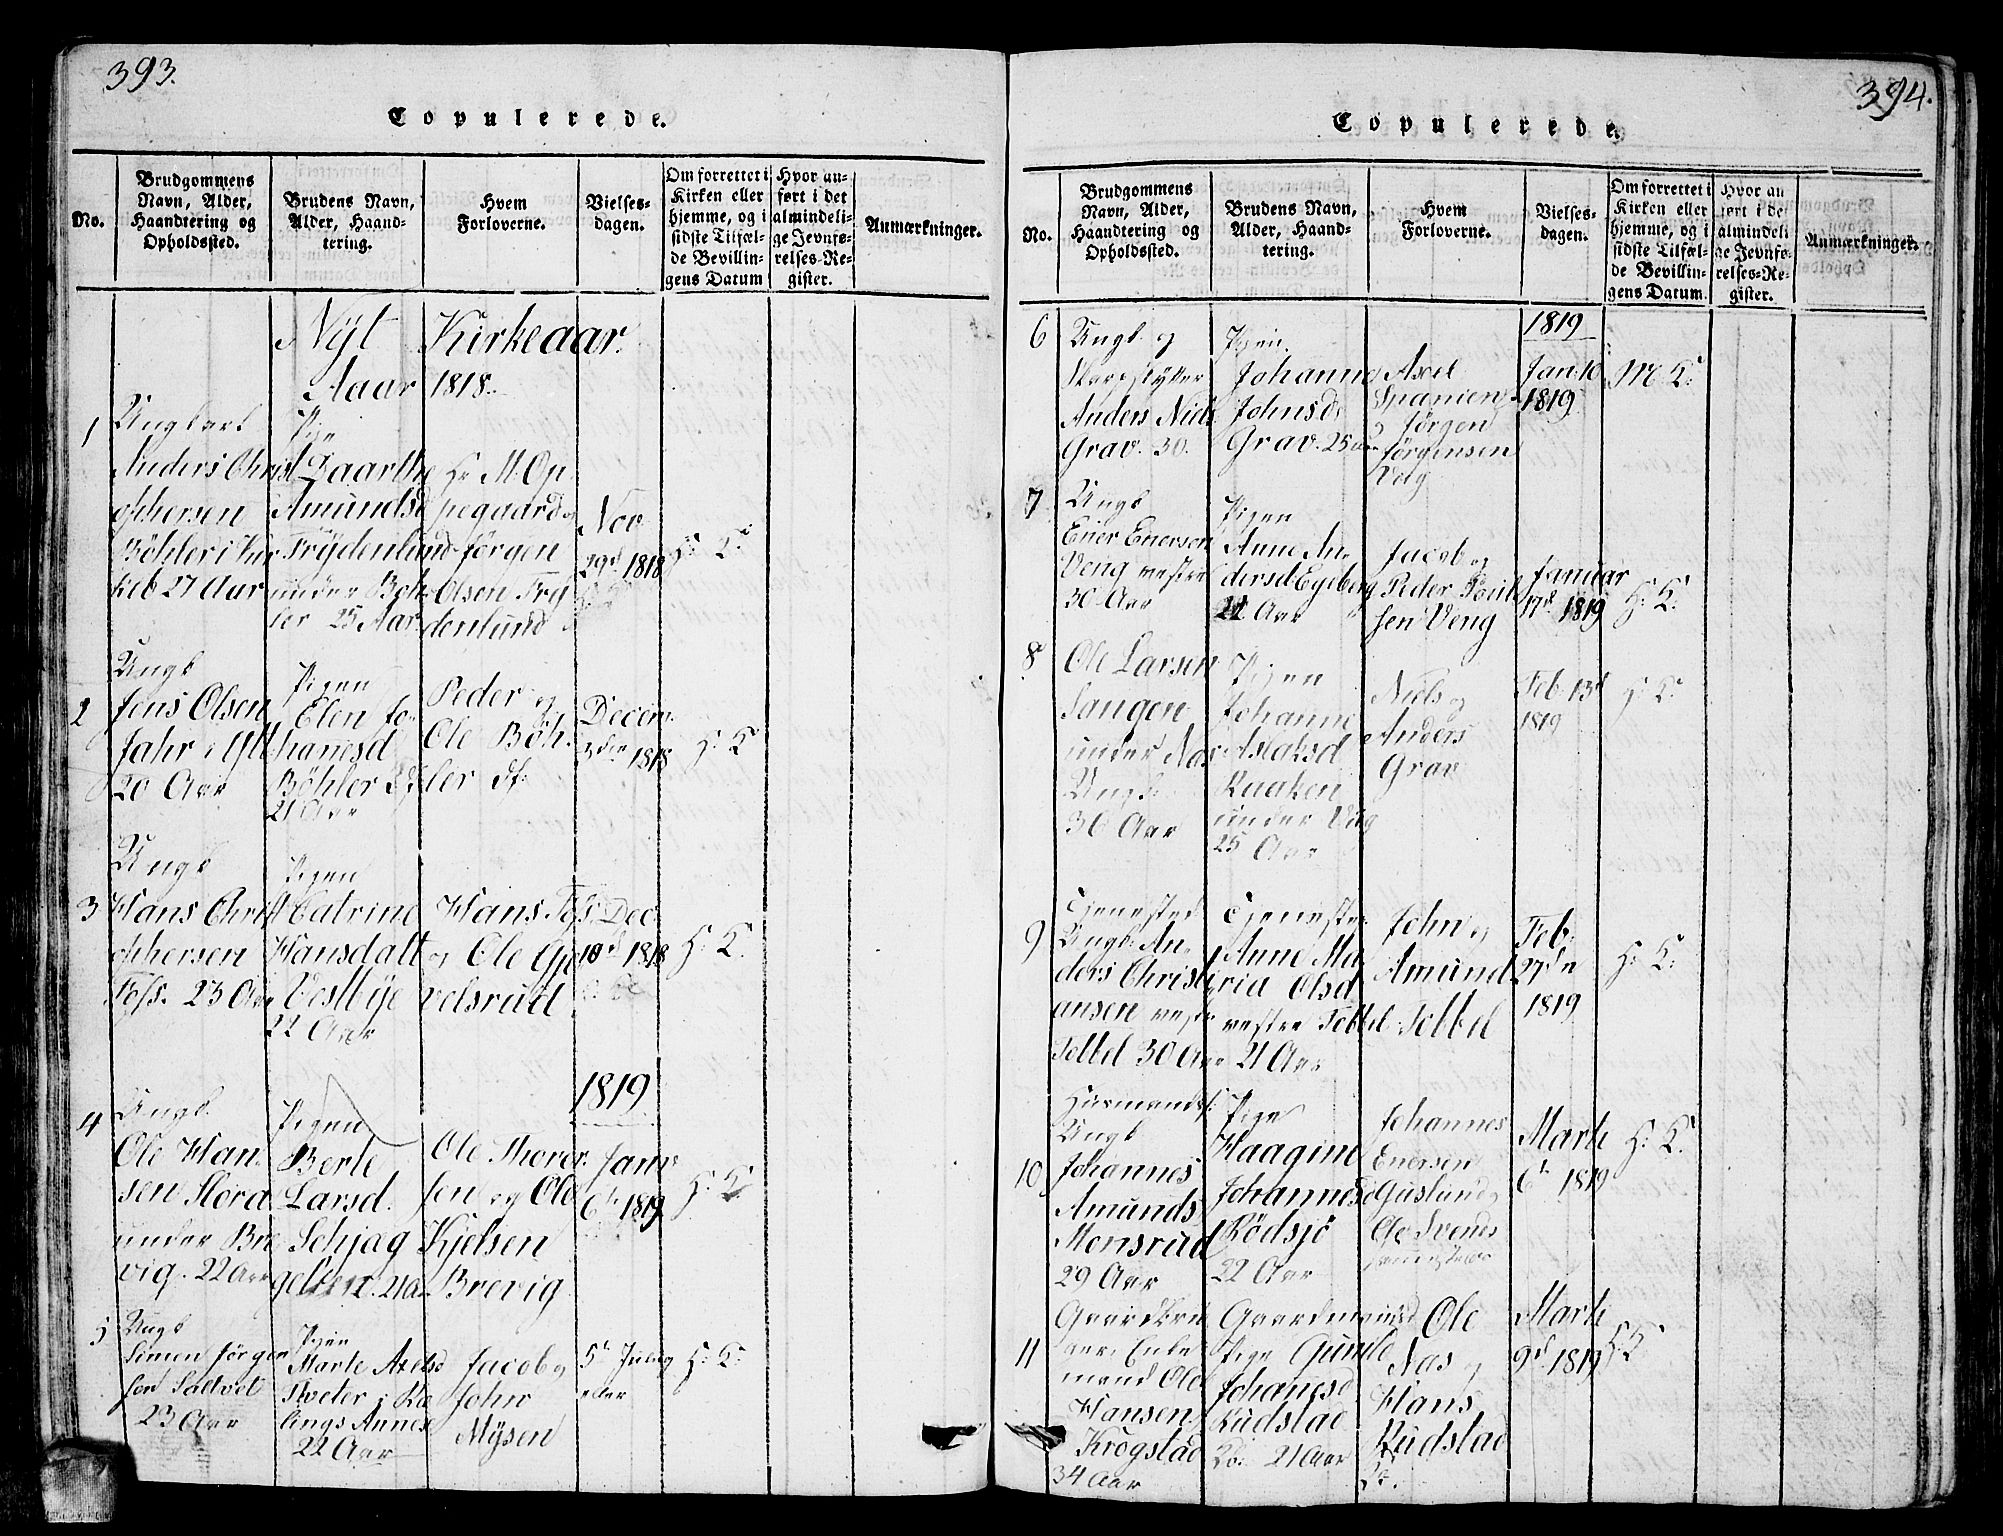 393.
Copulerede.
No.
Brudgommens
Navn, Alder,
Haandtering og
Opholdssted.
Brudens Navn,
Alder, Haand-
tering.
Hvem
Forloverne.
Vielses-
dagen.
Om forrettet i
Kirken eller
hjemme, og i
sidste Tilfæl-
de Bevillin-
gens Datum
Hvor an-
ført i det
almindeli-
ge Jevnfø-
relses-Re-
gister.
Anmærkninger.
Nÿt Kirkeaar.
Aar 1818.
1
Ungkarl
Anders Christ
ophersen
Böhler i Kur
27 Aar
Pige
Amundsd
Frÿdenlund
under Böh-
ler 25 Aar
Hr M. Op
pegaard og
Jörgen
Olsen Frÿ
denlund
Nov
29d 1818
H: K:
2
Ungk
Jens Olsen
Jahr i
20 Aar
Pigen
Elen Jo-
hanesd
Böhler
21 Aar
Peder og
Ole Böh-
ler
Decem.
3die 1818
H: K
3
Ungk
Hans Christ
ophersen
Foss. 23 Aar
Pigen
Catrine
Hansdatt
Vestbÿe
22 Aar
Hans Foss
og Ole Gje
velsrud
Dec
1818
H: K:
4
Ungk.
Ole Han-
sen Slora
under Bre
vig. 22 Aar
Pigen
Berte
Larsd.
Schjag
gelten. 21 a
Ole Thorer
sen og Ole
Kjelsen
Brevig
1819
Janr
6t 1819
H: K
5
Ungk
Simen Jörgen
sen Saltvet
23 Aar
Pigen
Marte Axelsd
Sketer i Kæ
lings Annex
22 Aar
Jacob og
John
Mÿsen
H: K:
394.
Copulerede.
No.
Brudgommens
Navn, Alder,
Haandtering og
Opholdssted.
Brudens Navn,
Alder, Haand-
tering.
Hvem
Forloverne.
Vielses-
dagen.
Om forrettet i
Kirken eller
hjemme, og i
sidste Tilfæl-
de Bevillin-
gens Datum.
Hvor an
ført i de
almindeli
ge Jevnfø-
relses-Re-
gister.
Anmærkninger.
6
Ungk og
Anders Niels
Grav. 30.
Pigen.
Johanne
Johnsd.
Grav. 25 aar
Axel
Spanien
og Jörgen
Jörgensen
Volg
1819
Jan: 10
1819
M K:
7
Ungk
Ener Enersen
Veng vestre
30 Aar
Pigen
Anne An-
dersd Egeberg
Aar
Jacob og
Peder Poul
sen Veng
Januar
17d 1819
H: K:
8
Ole Larsen
Sangen
under Nas
Ungk:
30 Aar
Pigen
Johanne
Aslaksd
Raaken
under
25 Aar
Niels og
Anders
Grav
Feb 13d
1819
H: K:
9
Tjenested
Ungk: An-
ders Christi
ansen vestre
Tobbel 30 Aar
Tjeneste.
Anne Ma
ria Olsd
vestre Tobbel
21 Aar
John og
Amund
Tobbel
Feb.
27d
1819
H: K:
10
Husmands
Ungk
Johannes
Amunds
Monsrud
29 Aar
Pige
Haagine
Johannesd
Rödsjö
22 Aar
Johannes
Enersen
Guslund
Ole Svends
Marti
6t 1819
H: K:
11
Enke
mand Ole
Hansen
Krogstad
34 Aar
Gaardmands
Pige Gunild
Johanesd
Rudstad
Do: 21 Aar
Ole
Nas og
Hans
Rudstad
Marti
9d 1819
H: K: